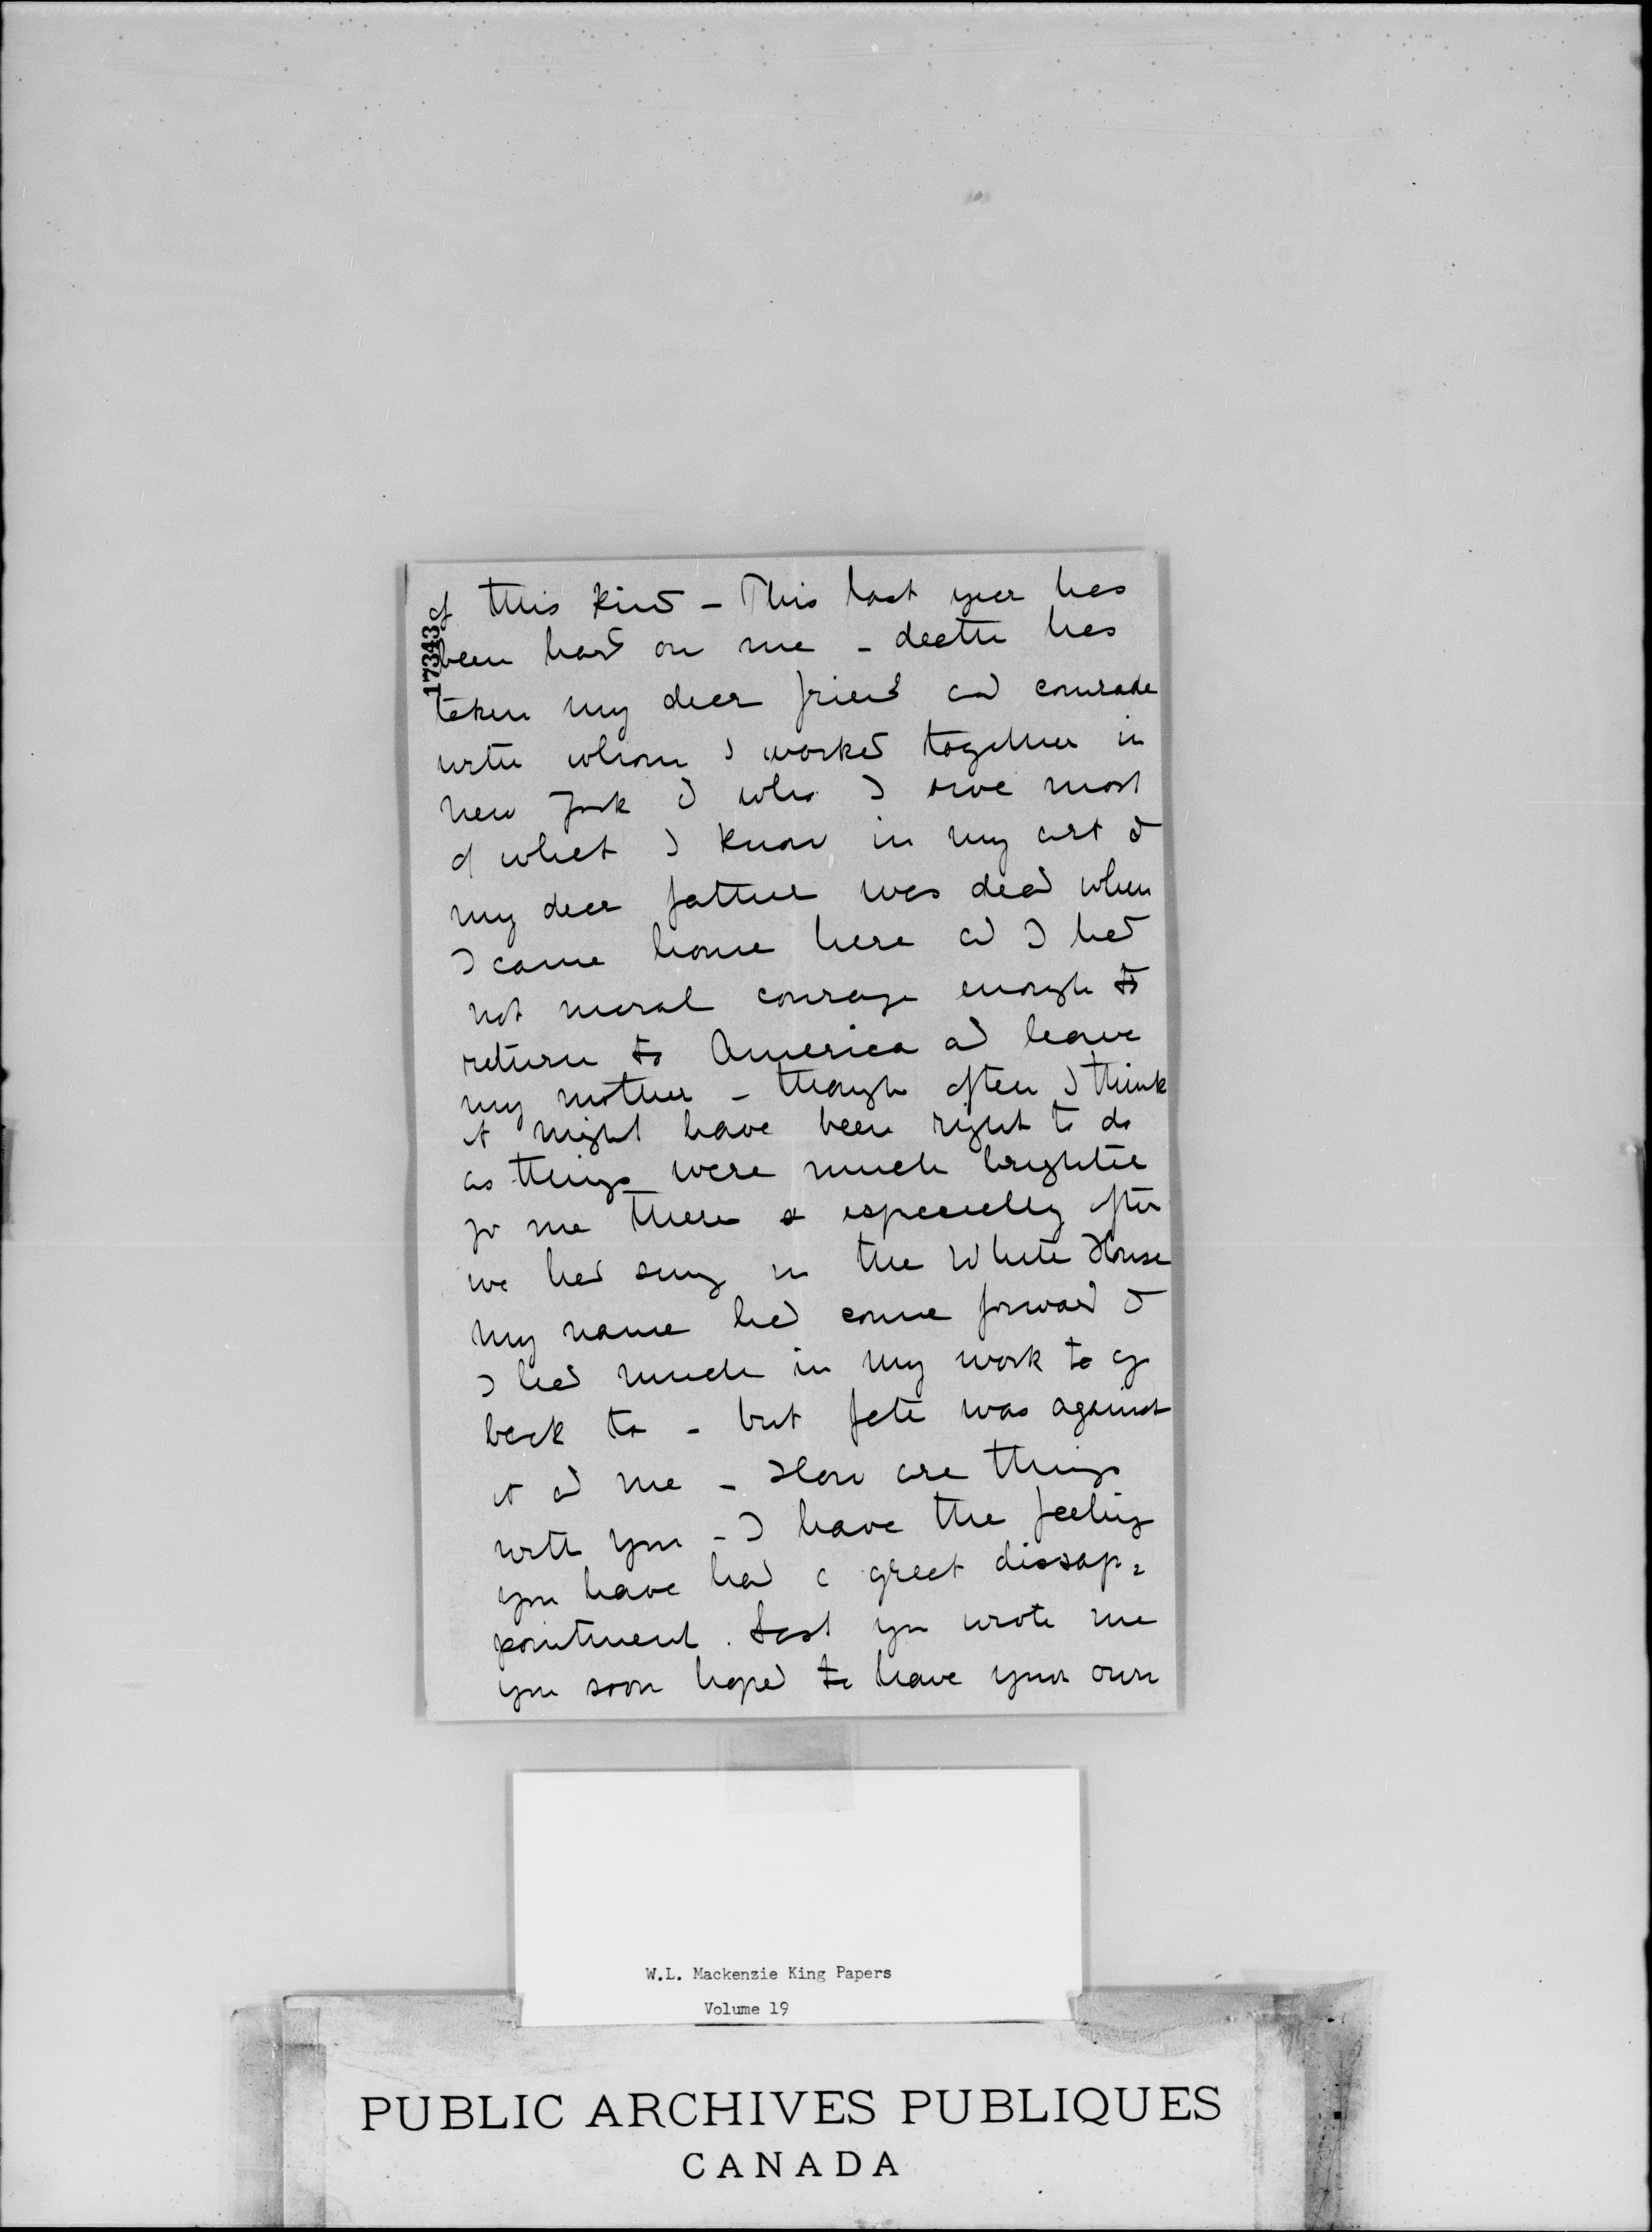 17343
of this kind - This last year has
been hard on me - death has
taken my dear friend and comrade
with whom I worked together in
New York & who I owe most
of what I know in my art &
my dear father was dead when
I came home here and I had
not moral courage enough to
return to America and leave
my mother - though often I think
it might have been right to do
as things were much brighter
for me there & especially after
we had sung in the White House
my name had come forward &
I had much in my work to go
back to - but fate was against
it and me - How are things
with you - I have the feeling
you have had a great dissap=
pointment. Last you wrote me
you soon hoped to have your own
W.L. Mackenzie King Papers
Volume 19
PUBLIC ARCHIVES PUBLIQUES
CANADA